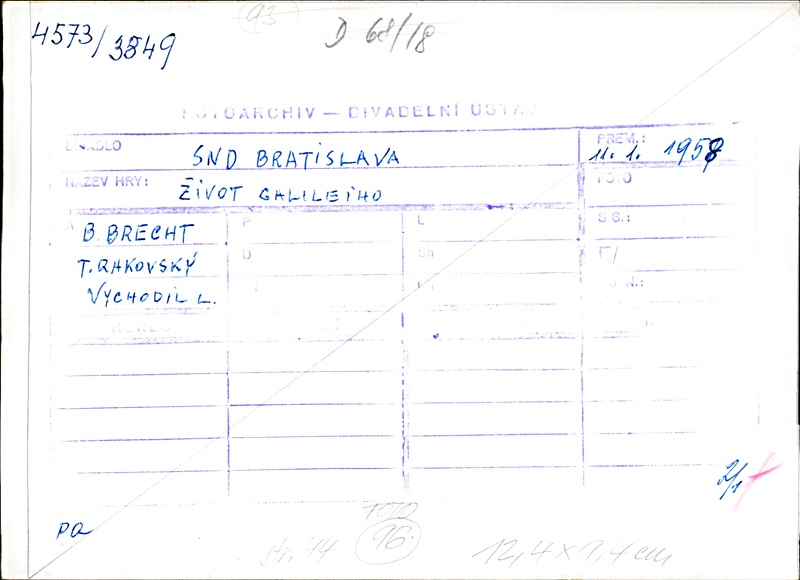 93
4573/3849
D 68/18
FOTOARCHIV — DIVADELNÍ ÚSTAV
DIVADLO SND BRATISLAVA PREM.: 11. 1. 1958
NÁZEV HRY: ŽIVOT GALILEIHO FOTO
A B. BRECHT P L SG.:
T. RAKOVSKÝ D Ch F/
VYCHODIL L.
2/1
PQ
FOTO
str. 44 96. 12,4 x 7,4 cm